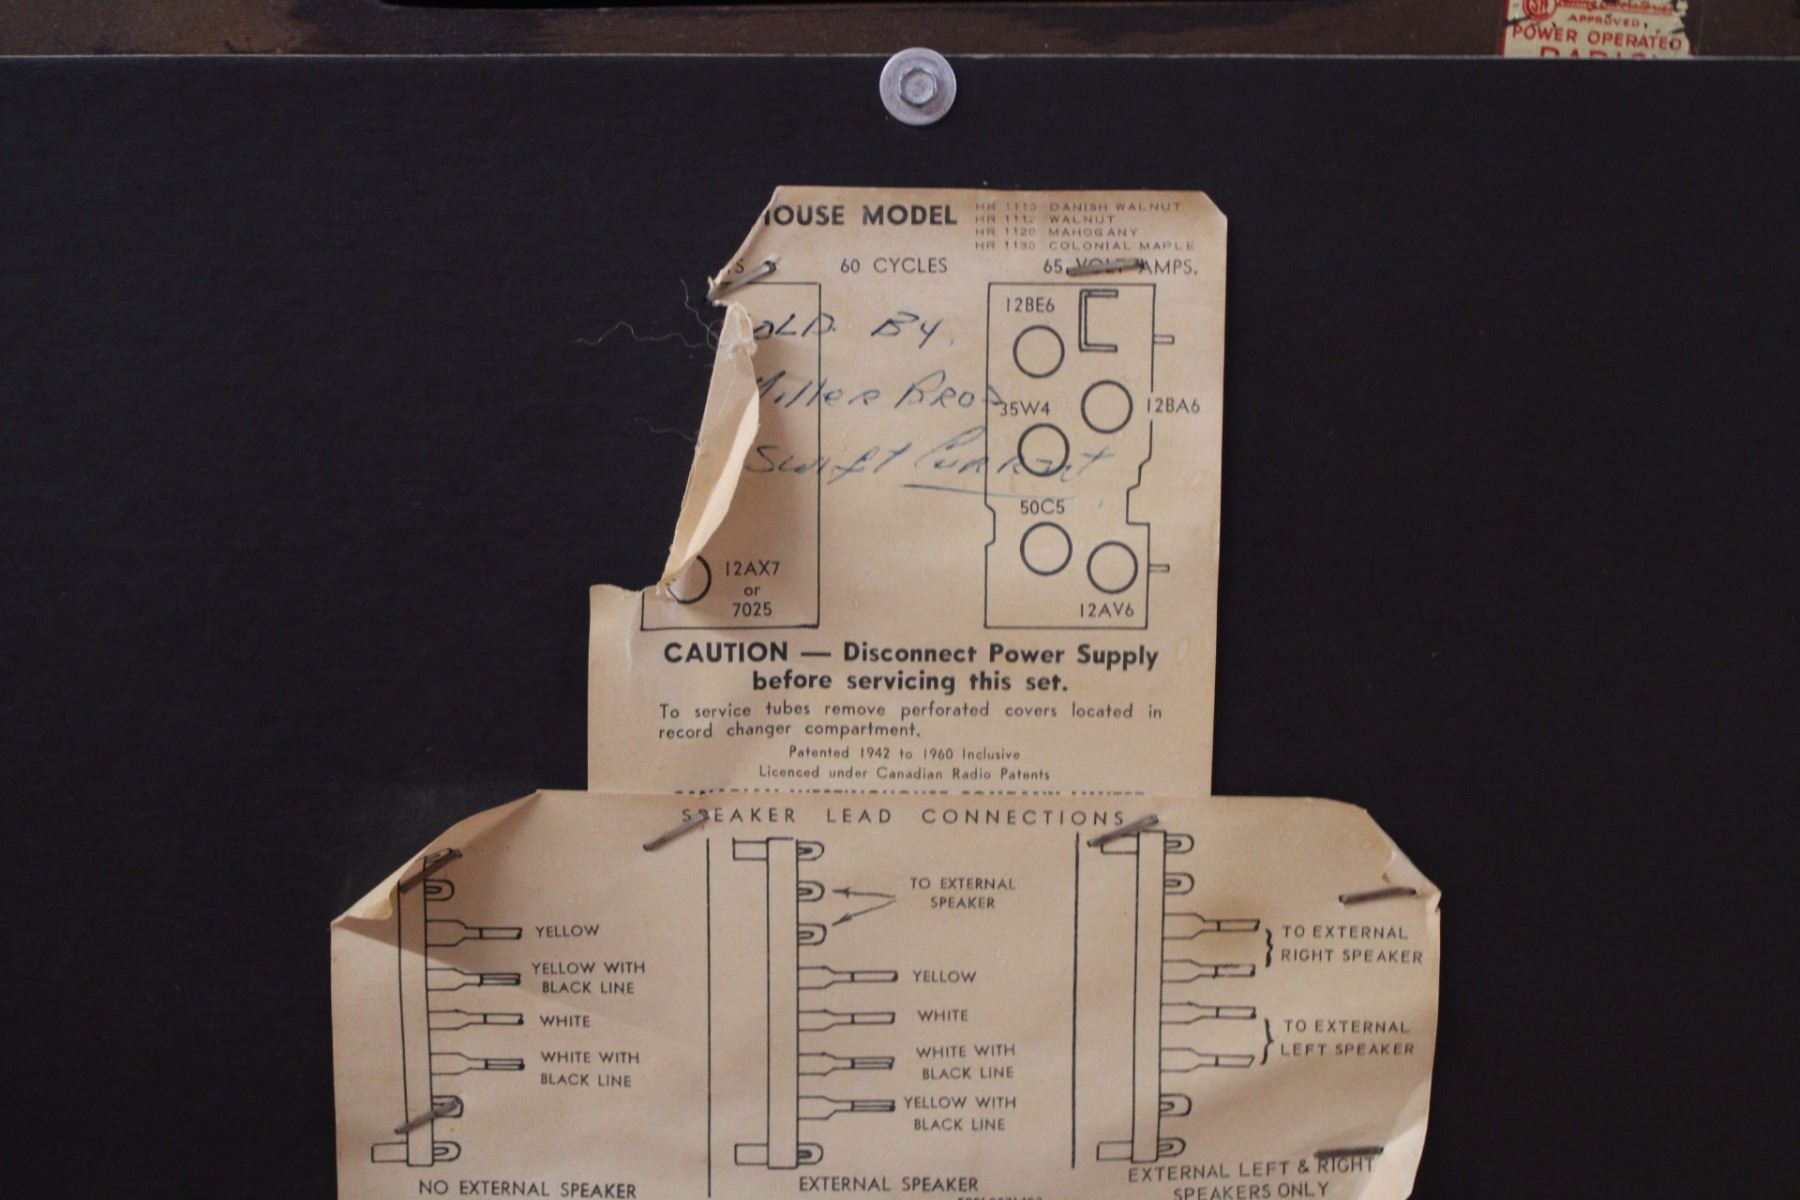 APPROVED
POWER OPERATED
RADIO
HOUSE MODEL
HR 1110 DANISH WALNUT
HR 1112 WALNUT
HR 1120 MAHOGANY
HR 1130 COLONIAL MAPLE
60 CYCLES
65 VOLT AMPS.
OLD By
Miller Bros
Swift Current
12BE6
35W4
12BA6
50C5
12AV6
12AX7
or
7025
CAUTION — Disconnect Power Supply
before servicing this set.
To service tubes remove perforated covers located in
record changer compartment.
Patented 1942 to 1960 Inclusive
Licenced under Canadian Radio Patents
CANADIAN WESTINGHOUSE COMPANY LIMITED
SPEAKER LEAD CONNECTIONS
YELLOW
YELLOW WITH
BLACK LINE
WHITE
WHITE WITH
BLACK LINE
NO EXTERNAL SPEAKER
TO EXTERNAL
SPEAKER
YELLOW
WHITE
WHITE WITH
BLACK LINE
YELLOW WITH
BLACK LINE
EXTERNAL SPEAKER
TO EXTERNAL
RIGHT SPEAKER
TO EXTERNAL
LEFT SPEAKER
EXTERNAL LEFT & RIGHT
SPEAKERS ONLY